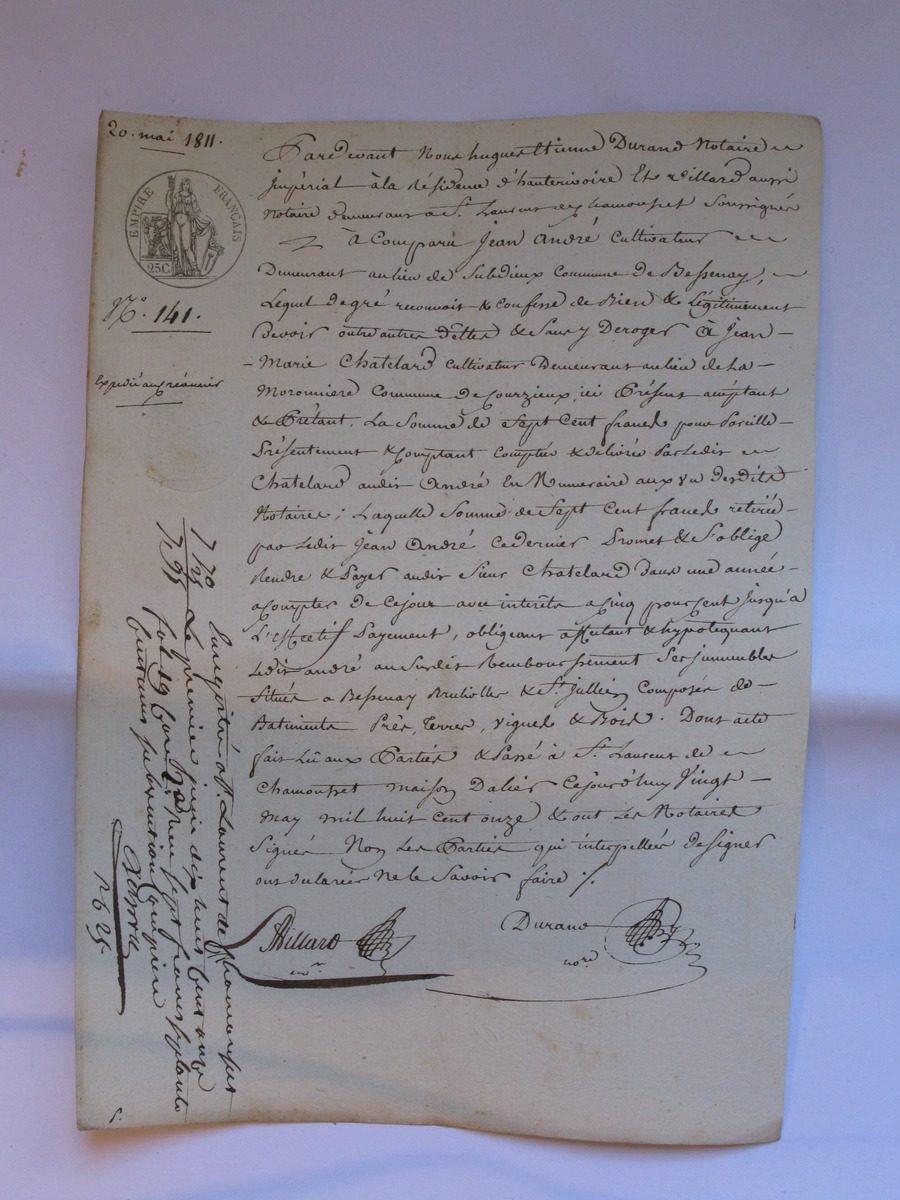 20. mai 1811.
EMPIRE FRANÇAIS
25C
N.° 141.
Expédié au créancier
Pardevant Nous hugues Etienne Durand Notaire
Impérial à la Résidence d'hauterivoire Et Villard aussi
Notaire demeurant a St. Laurent de chamousset Soussignés
à Comparu Jean André Cultivateur
Demeurant au lieu de Subdieux Commune de Bessenay,
Lequel de gré reconnoit & confesse de Bien & Légitimement
Devoir outre autres dettes & Sans y Deroger à Jean-
-Marie Chatelard Cultivateur Demeurant au lieu de La-
Moronniere Commune de Courzieux, ici Présent acceptant
& Prétant, La Somme de Sept Cent francs pour Pareille
Présentement & Comptant Comptée & delivrée Par Ledit
Chatelard audit André En Numeraire aux vu desdits
Notaires; Laquelle Somme de Sept Cent francs retirée
par Ledit Jean André Ce dernier Promet & S'oblige
Rendre & Payer audit Sieur Chatelard dans une année
a Compter de Cejour avec interêts a Cinq pour Cent Jusqu'a
L'Effectif Payement, obligeant affectant & hypotequant
Ledit andré au Susdit Remboursement Ses immeubles
Situés a Bessenay Brulliolles & St. Jullien Composés de
Batiments Prés, Terres, Vignes & Bois. Dont acte
fait Lû aux Parties & Passé à St. Laurent de
Chamousset maison Dalier Cejourd'huy Vingt
may mil huit Cent onze & ont Les Notaires
Signés Non Les Parties qui interpellées de Signer
ont declarées Ne le Savoir faire ./.
Villard
no.re
Durand
no.re
Enregistré à St. Laurent de Chamousset
Le premier juin dix huit cent onze
fol. 19
Sept francs
centimes Subvention Comprise
26 25.